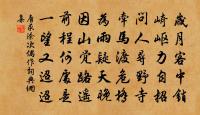 歲月客中銷
崎嶇力自招
問人尋野寺
牽馬渡危橋
為雨疑天晚
因山覺路遙
前程何處是
一望又迢迢
唐求塗次偶作詞典網
集